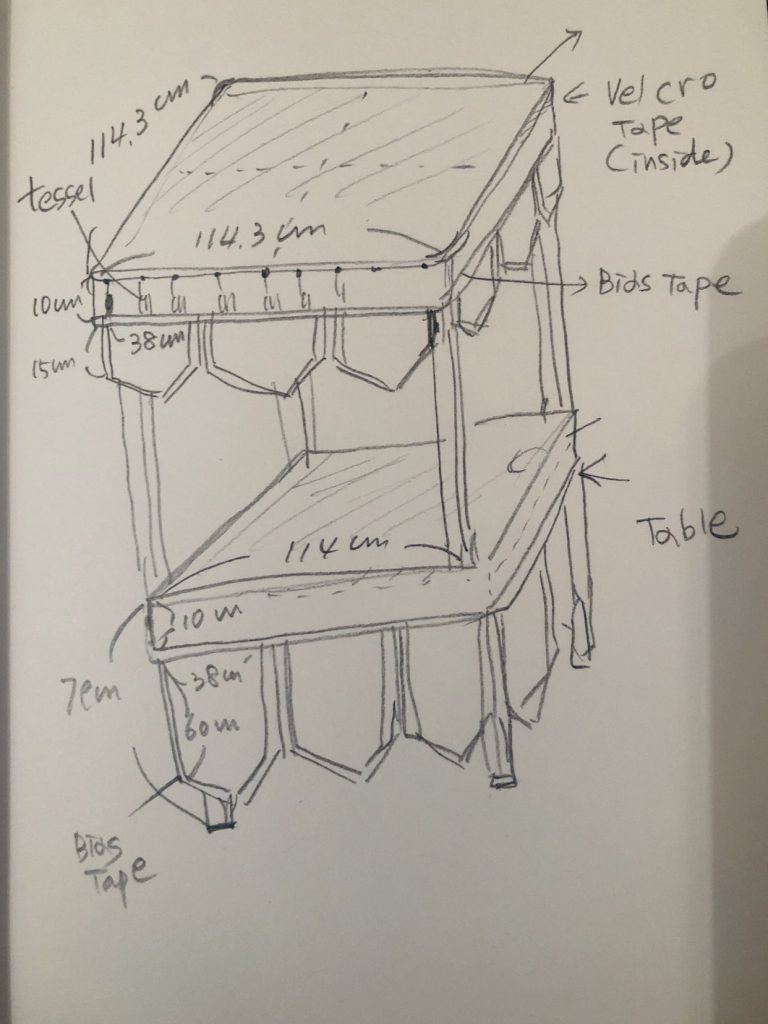 114.3 cm
← Velcro
Tape
(inside)
tessel
114.3 cm
10cm
Bids Tape
38cm
15cm
114 cm
Table
10 cm
7cm
38cm
60cm
Bids
Tape